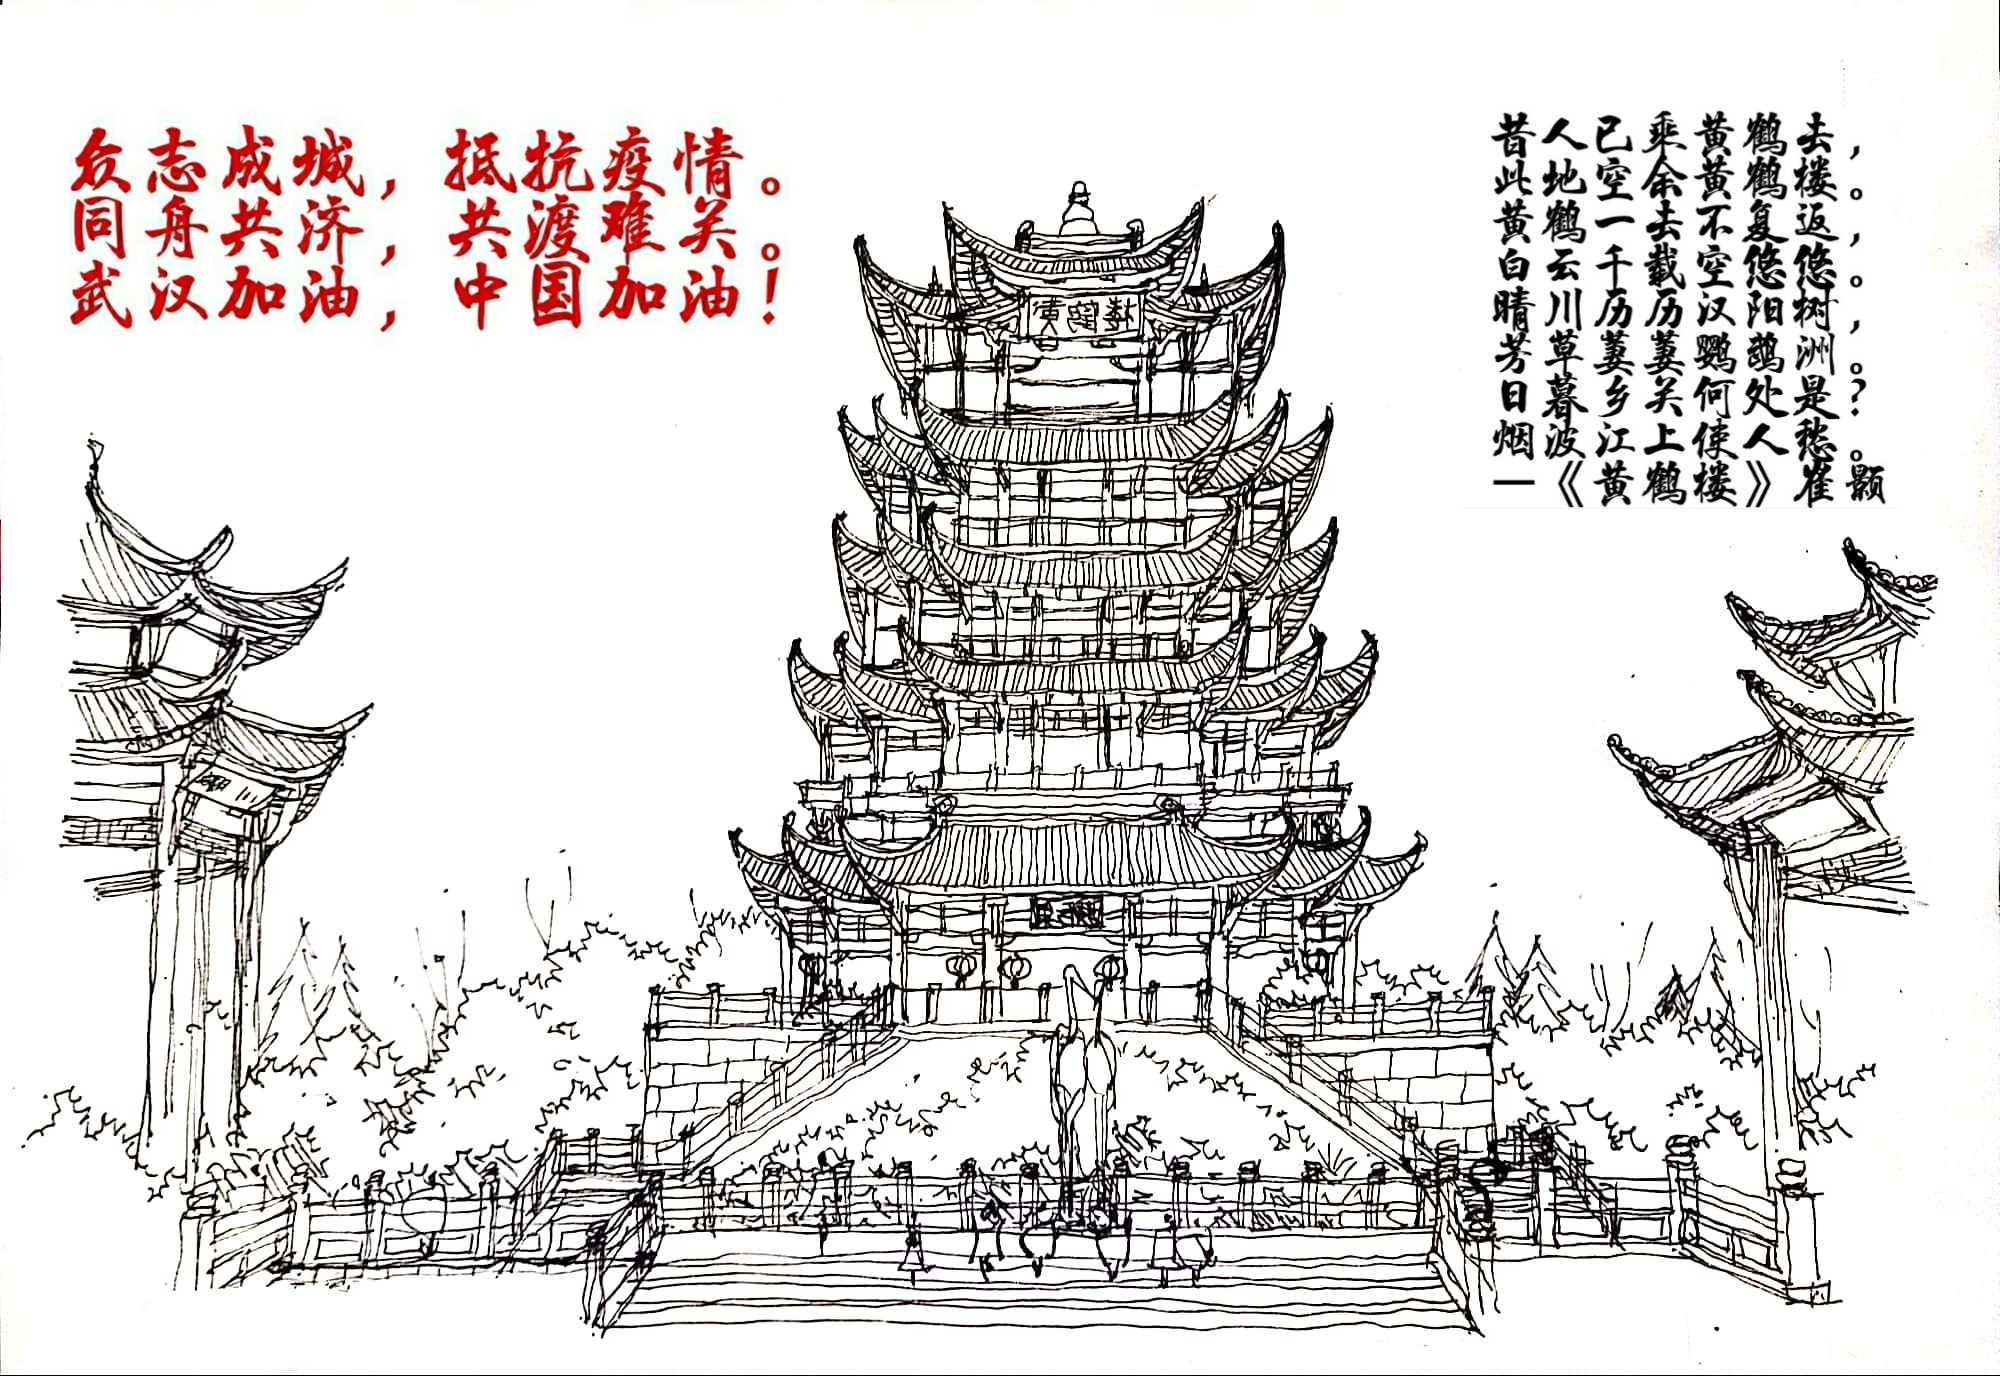 众志成城，抵抗疫情。
同舟共济，共渡难关。
武汉加油，中国加油！
昔人已乘黄鹤去，
此地空余黄鹤楼。
黄鹤一去不复返，
白云千载空悠悠。
晴川历历汉阳树，
芳草萋萋鹦鹉洲。
日暮乡关何处是？
烟波江上使人愁。
—《黄鹤楼》崔颢